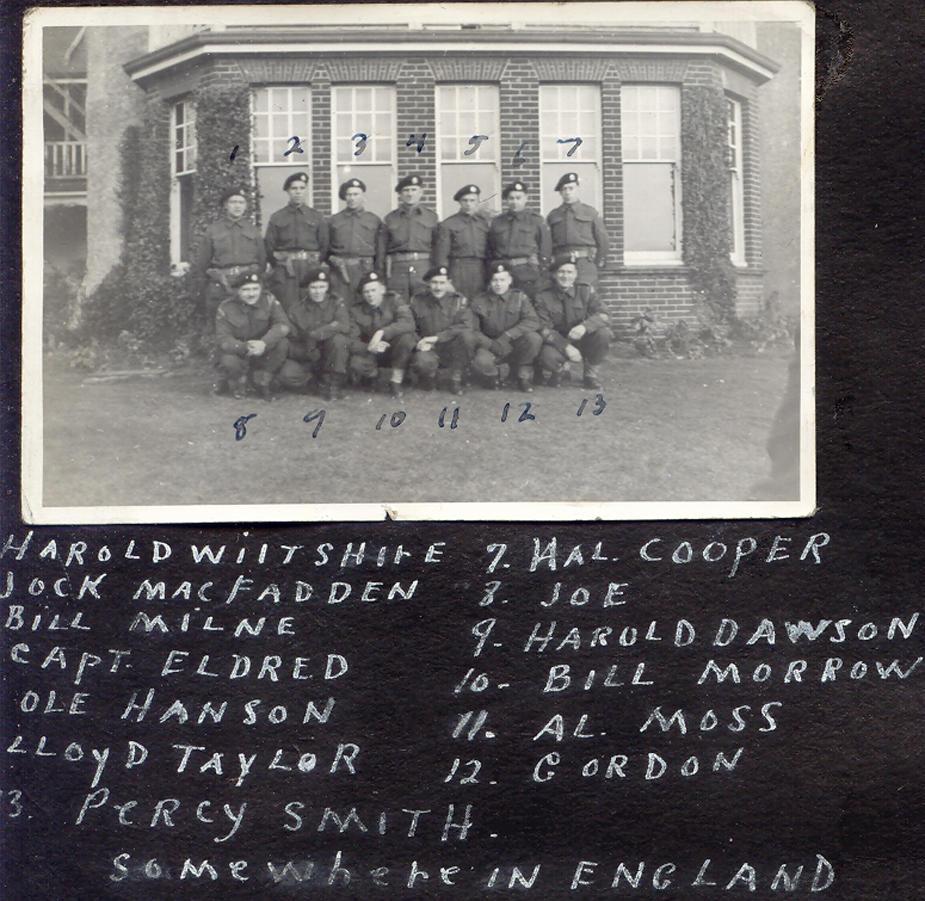 1 2 3 4 5 6 7
8 9 10 11 12 13
HAROLD WILTSHIRE 7. HAL. COOPER
JOCK MACFADDEN 8. JOE
BILL MILNE 9. HAROLD DAWSON
CAPT. ELDRED 10. BILL MORROW
OLE HANSON 11. AL. MOSS
LLOYD TAYLOR 12. GORDON
3. PERCY SMITH.
SOMEwhere IN ENGLAND